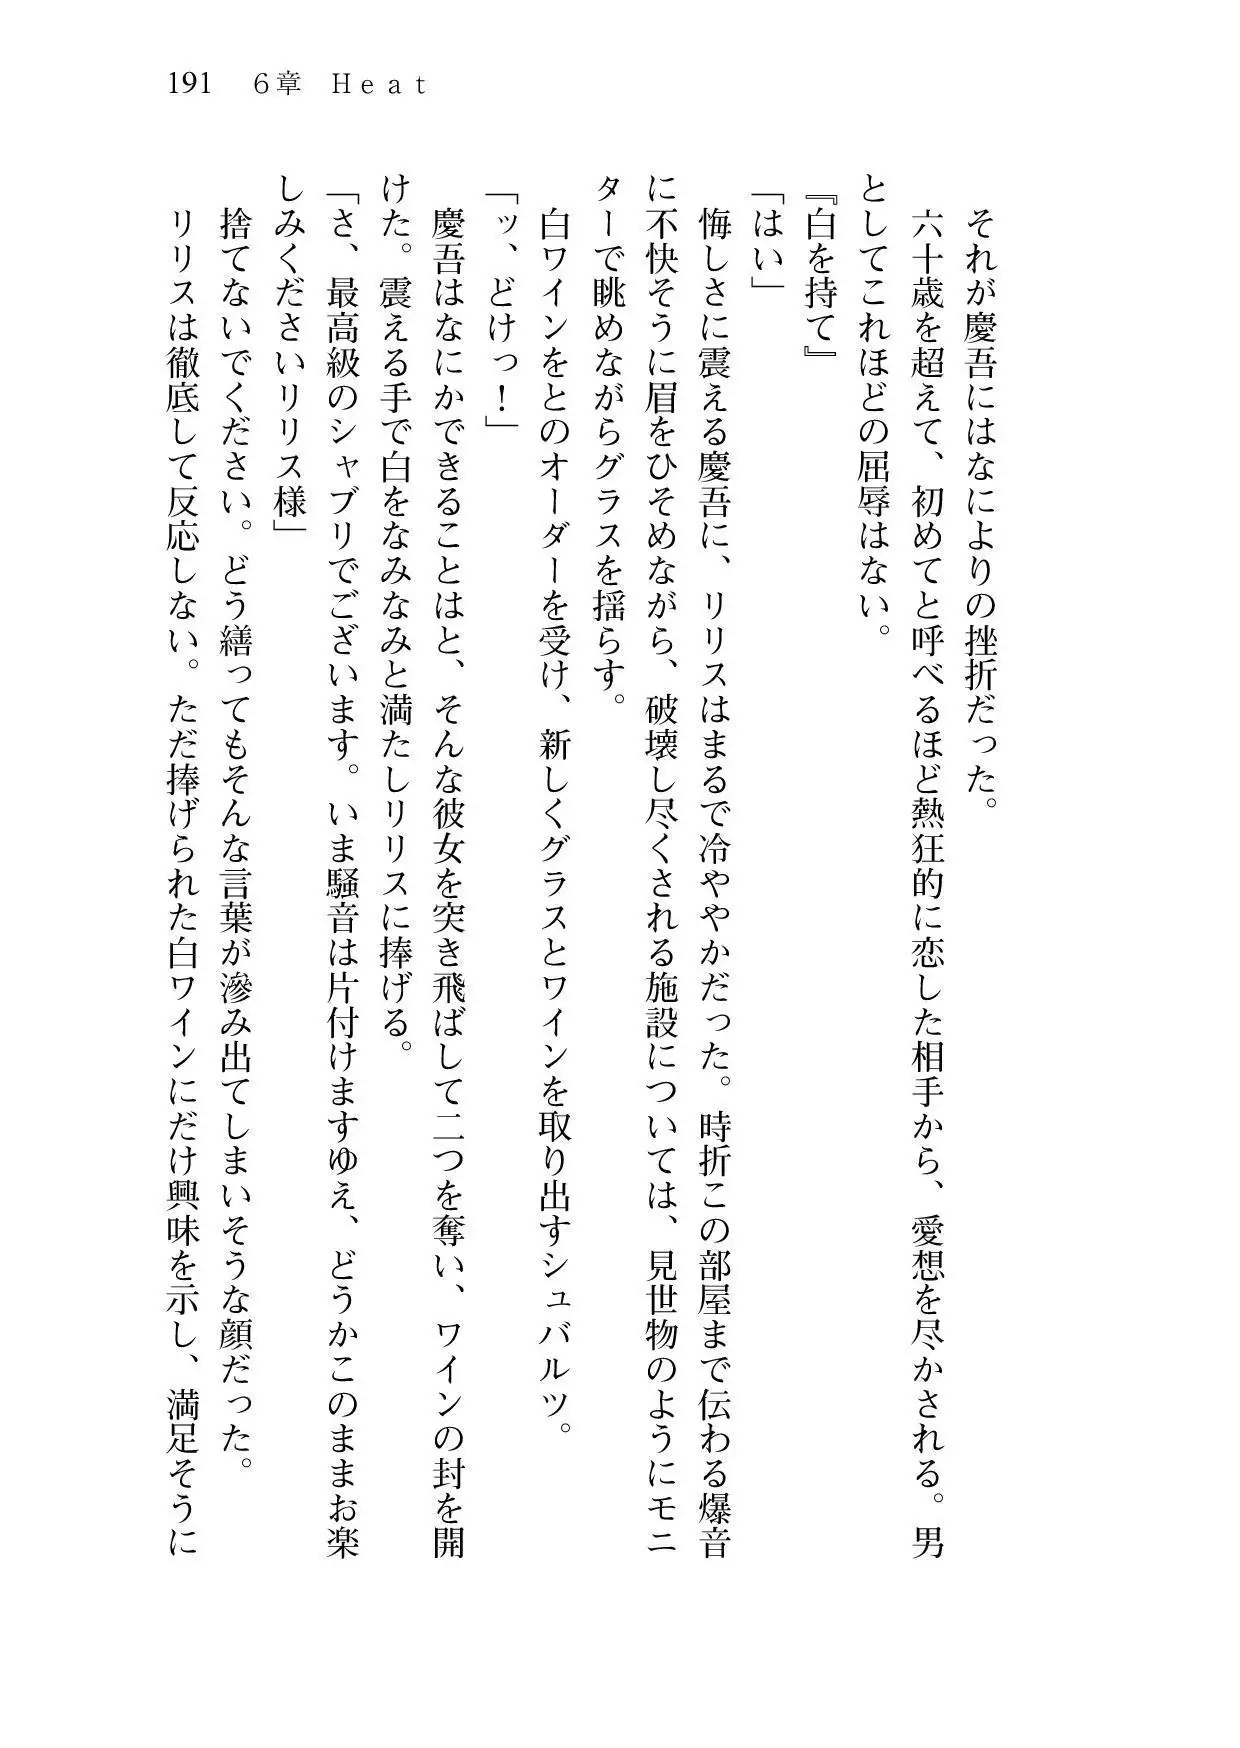 191　6章　Heat
　それが慶吾にはなによりの挫折だった。
　六十歳を超えて、初めてと呼べるほど熱狂的に恋した相手から、愛想を尽かされる。男
としてこれほどの屈辱はない。
『白を持て』
「はい」
　悔しさに震える慶吾に、リリスはまるで冷ややかだった。時折この部屋まで伝わる爆音
に不快そうに眉をひそめながら、破壊し尽くされる施設については、見世物のようにモニ
ターで眺めながらグラスを揺らす。
　白ワインをとのオーダーを受け、新しくグラスとワインを取り出すシュバルツ。
「ッ、どけっ！」
　慶吾はなにかできることはと、そんな彼女を突き飛ばして二つを奪い、ワインの封を開
けた。震える手で白をなみなみと満たしリリスに捧げる。
「さ、最高級のシャブリでございます。いま騒音は片付けますゆえ、どうかこのままお楽
しみくださいリリス様」
　捨てないでください。どう繕ってもそんな言葉が滲み出てしまいそうな顔だった。
　リリスは徹底して反応しない。ただ捧げられた白ワインにだけ興味を示し、満足そうに